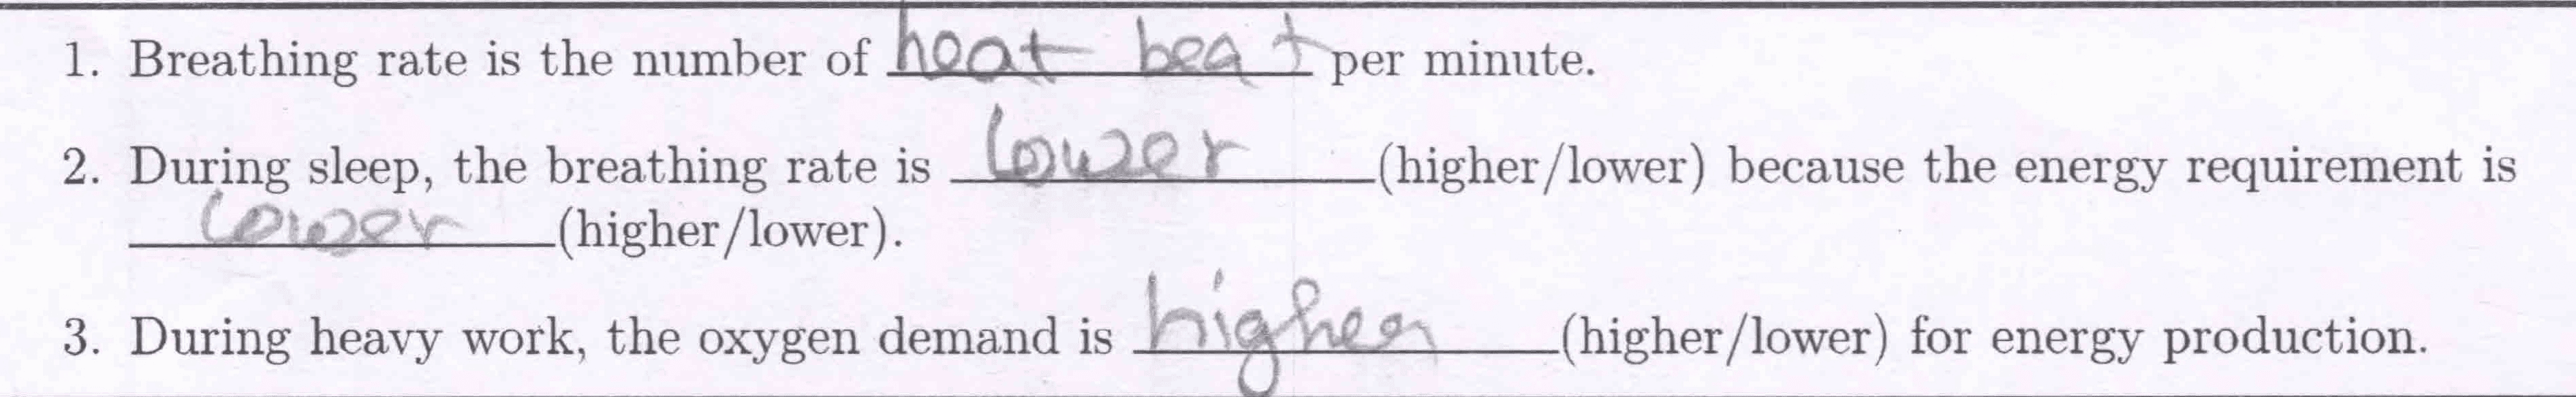 1. Breathing rate is the number of heat beat per minute.
2. During sleep, the breathing rate is lower (higher/lower) because the energy requirement is
lower (higher/lower).
3. During heavy work, the oxygen demand is higher (higher/lower) for energy production.